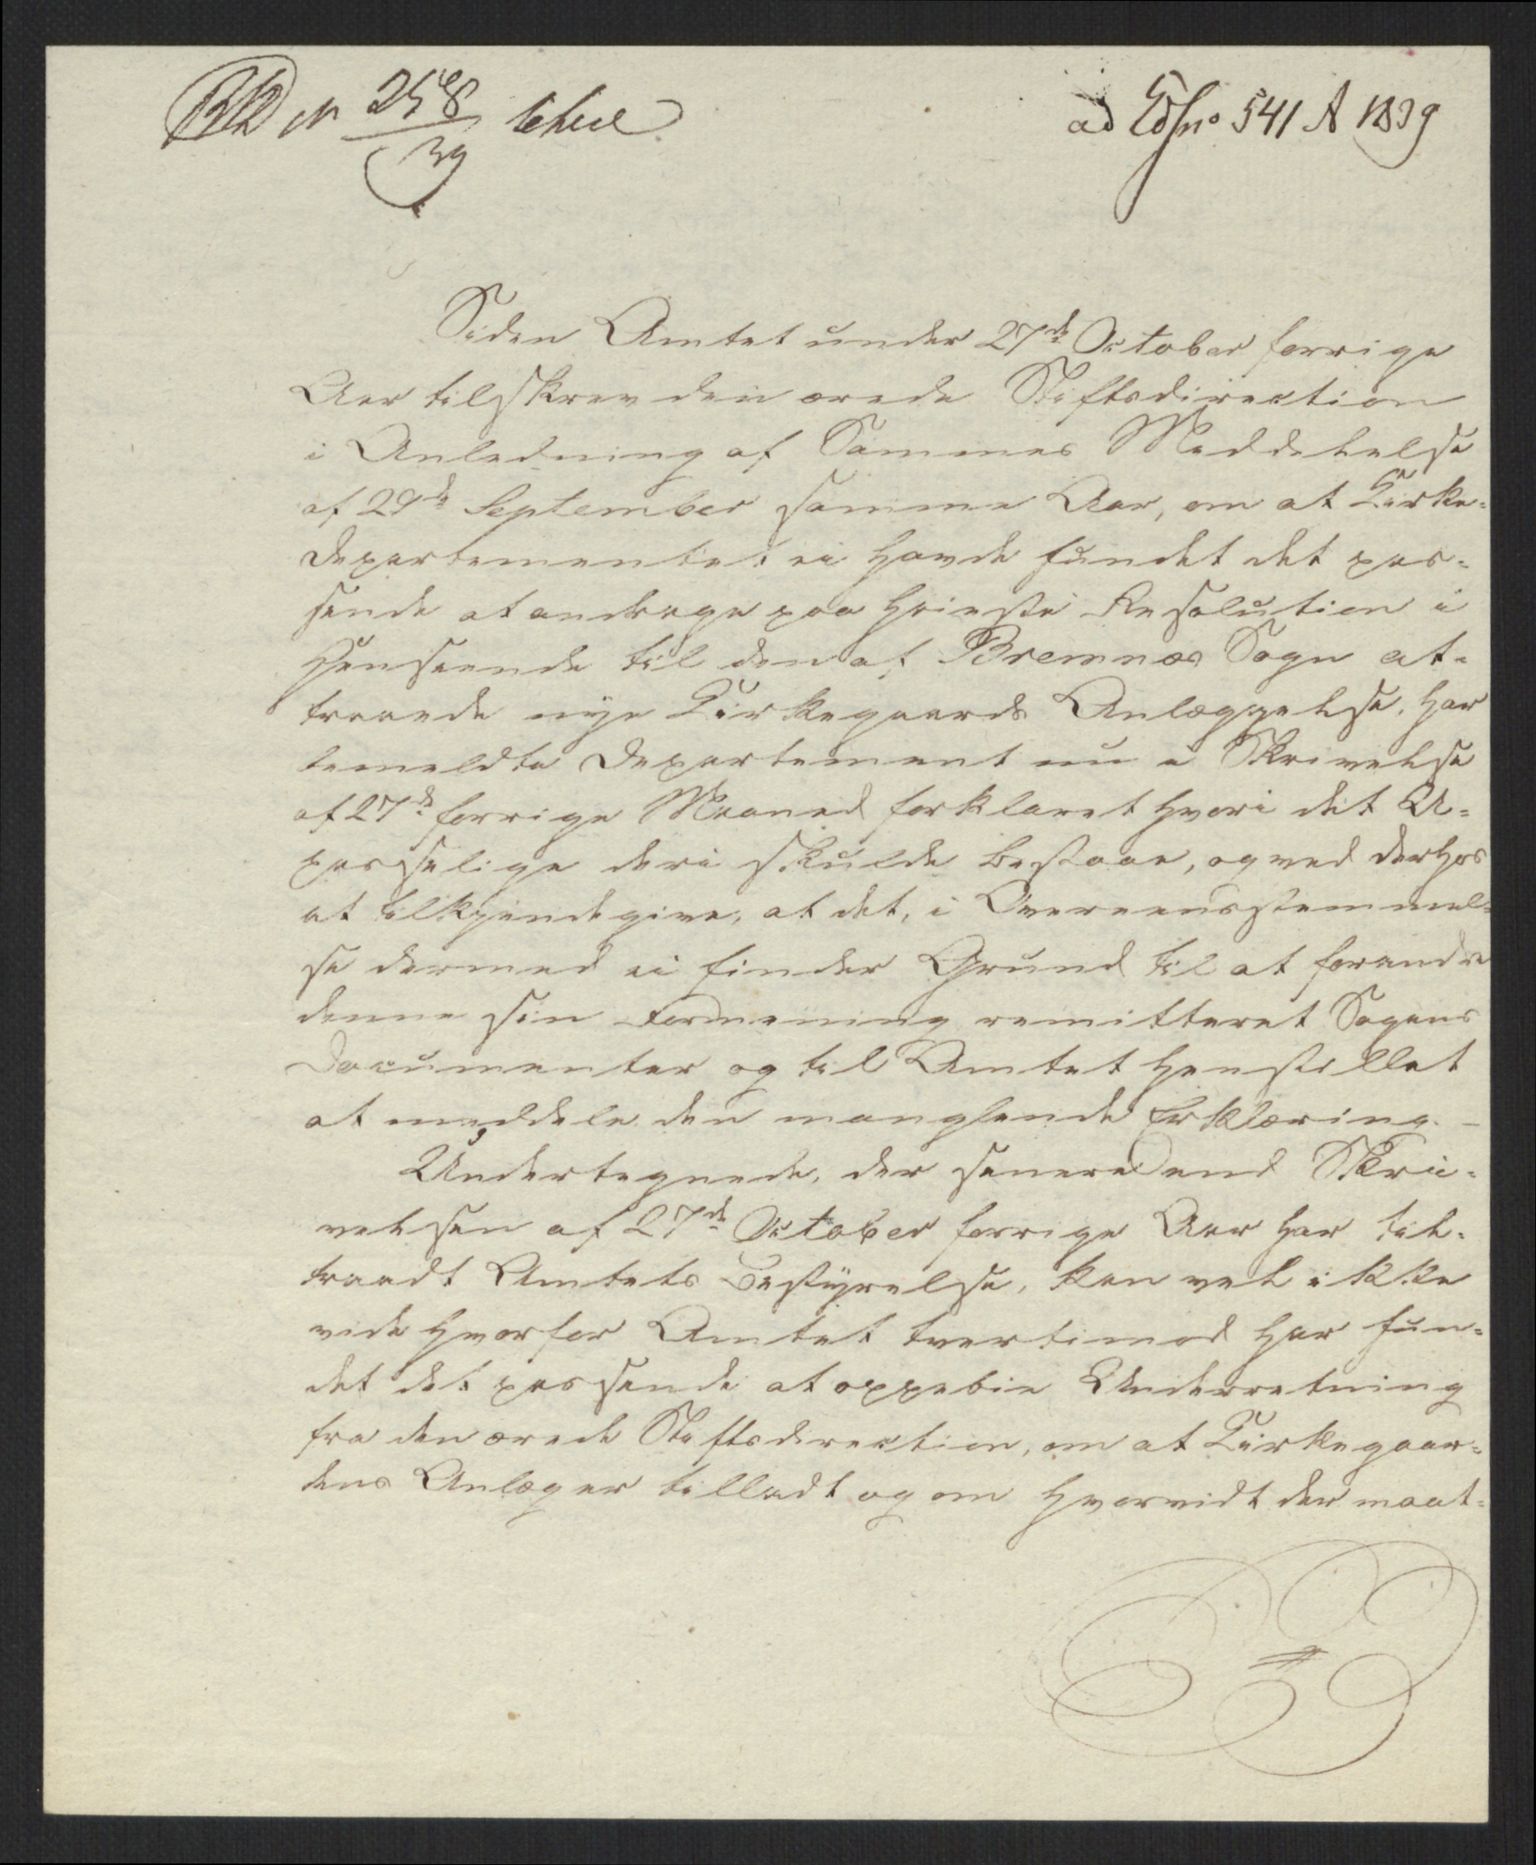 No 258/39
ad No 541 A 1839
Siden Amtet under 27de October forrige
Aar tilskrev den ærede Stiftsdirection
i Anledning af Sammes Meddelelse
af 29de September samme Aar, om at Kirke-
departementet ei havde fundet det pas-
sende at andrage paa Høieste Resolution i
Henseende til den af Bremnæs Sogn at-
traaede nye Kirkegaards Anlæggelse, har
bemeldte Departement nu i Skrivelse
af 27de forrige Maaned forklaret hvori det U-
passelige deri skulde bestaae, og ved derhos
at tilkjendegive, at det, i Overeensstemmel-
se dermed ei finder Grund til at forandre
denne sin Formening remitteret Sagens
Documenter og til Amtet henstillet
at meddele den manglende Erklæring. -
Undertegnede, der senere end Skri-
velsen af 27de October forrige Aar har til-
traadt Amtets Bestyrelse, kan vel ikke
vide hvorfor Amtet tvertimod har fun-
det det passende at oppebie Underretning
fra den ærede Stiftsdirection, om at Kirkegaar-
dens Anlæg er tilladt og om hvorvidt der maat-